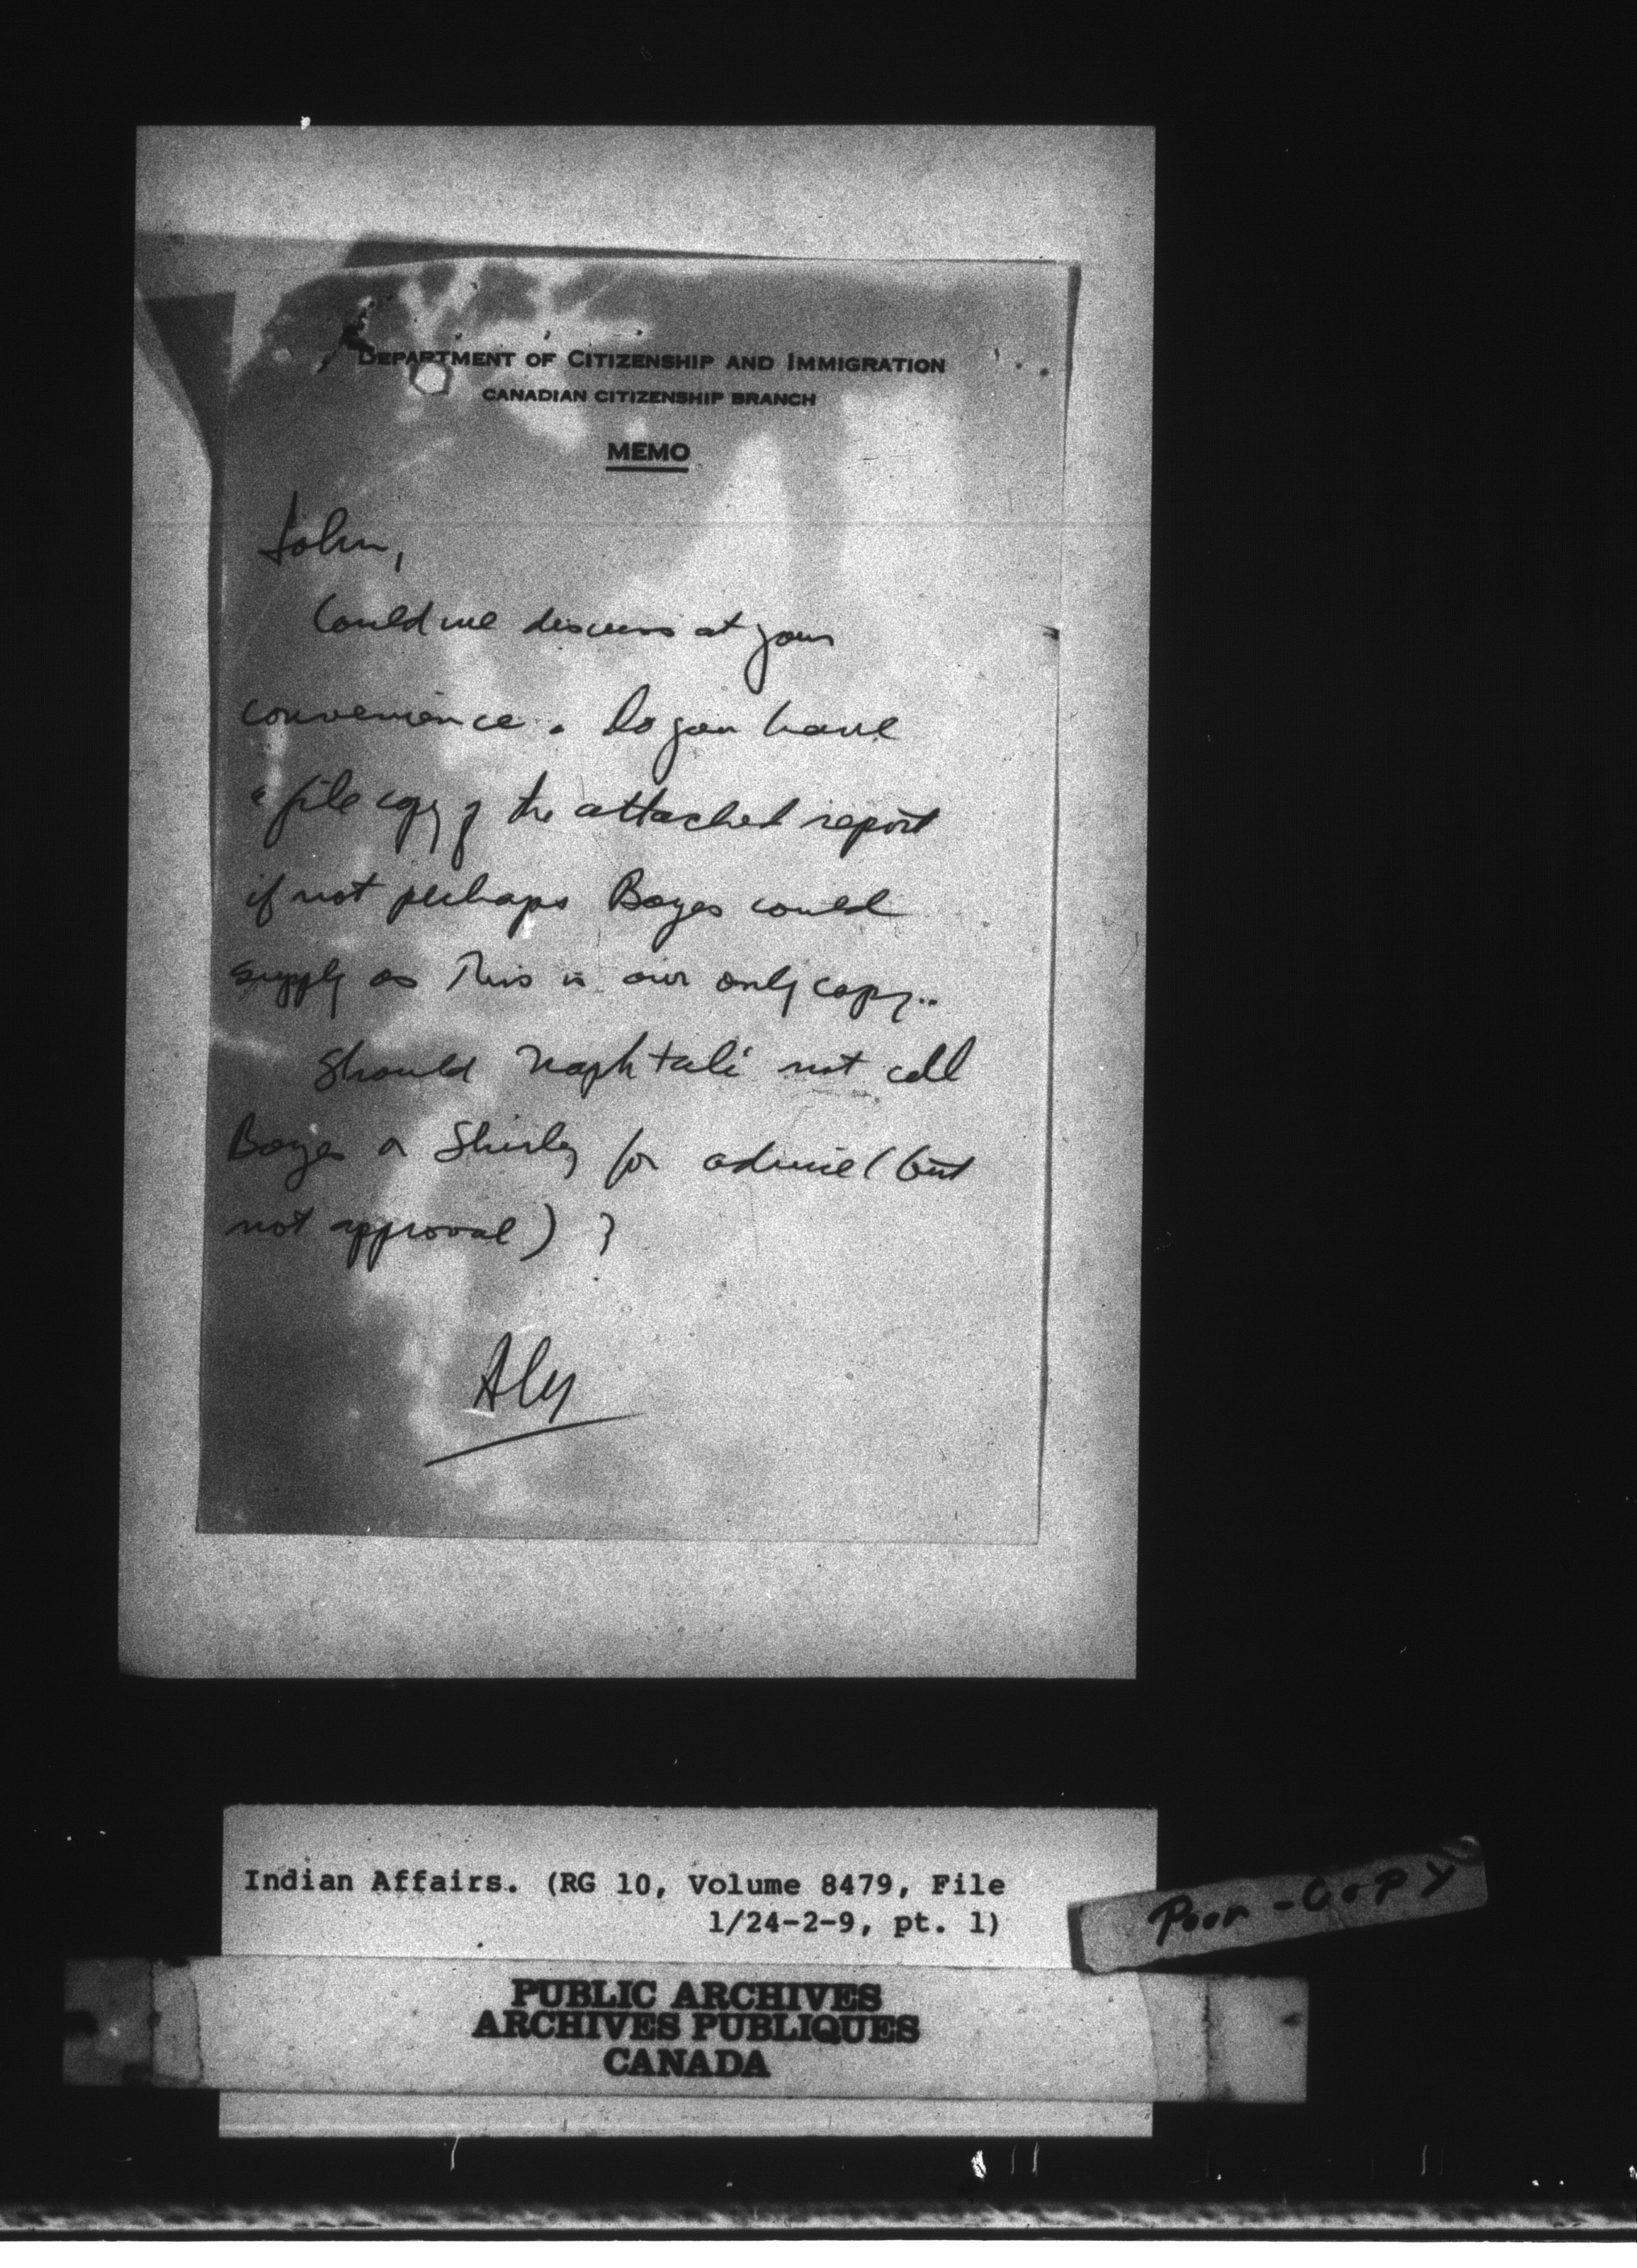 DEPARTMENT OF CITIZENSHIP AND IMMIGRATION
CANADIAN CITIZENSHIP BRANCH
MEMO
John,
Could we discuss at your
convenience. Do you have
a file copy of the attached report
if not perhaps Boyes could
supply as this is our only copy..
Should Naphtali not call
Boyes or Shirley for advice (but
not approval) ?
Indian Affairs. (RG 10, Volume 8479, File
1/24-2-9, pt. 1)
Poor-Copy
PUBLIC ARCHIVES
ARCHIVES PUBLIQUES
CANADA